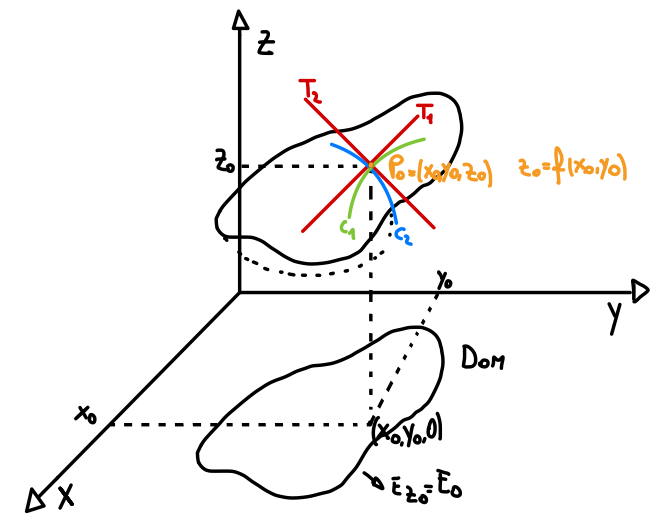 Z
T₂
T₁
z₀
P₀=(x₀,y₀,z₀) z₀=f(x₀,y₀)
C₁
C₂
y₀
Y
DOM
x₀
(x₀,y₀,0)
E_{z₀}=E₀
X